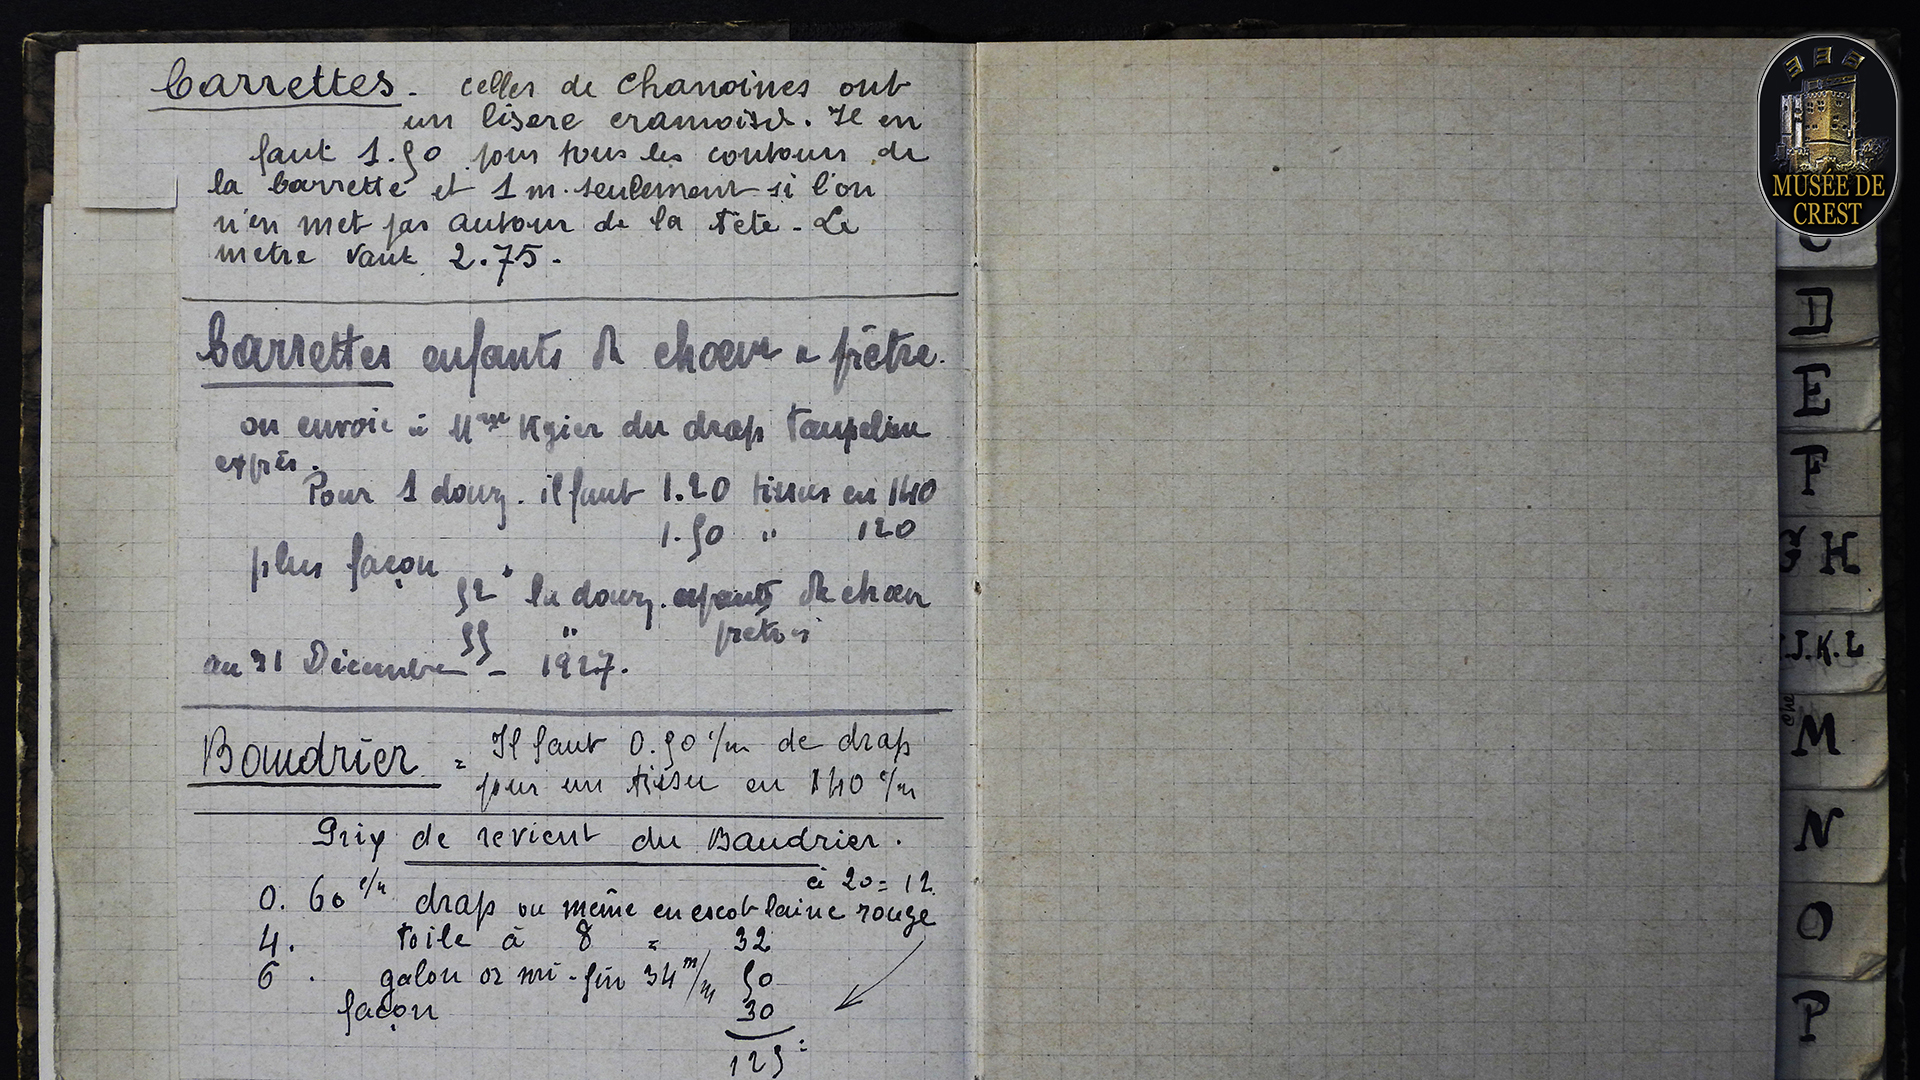 barrettes - celles de chanoines ont
un liseré cramoisi. Il en
faut 1.50 pour tous les contours de
la barrette et 1 m. seulement si l'on
n'en met pas autour de la tête - Le
mètre vaut 2.75.
barrettes enfants de choeur & prêtre.
on envoie à Mme du drap
exprès.
Pour 1 douz. il faut 1.20 tissus en 140
1.50 " 120
plus façon
52 la douz. enfants de choeur
55 " prêtres
au 31 Décembre - 1927.
Baudrier = Il faut 0.50 c/m de drap
pour un tissu en 140 c/m
Prix de revient du Baudrier.
à 20 = 12.
0.60 c/m drap ou même en escot laine rouge
4. toile à 8 = 32
6. galon or mi-fin 34 m/m 50
façon 30
125
MUSÉE DE
CREST
C
D
E
F
G H
I.J.K.L
M
N
O
P